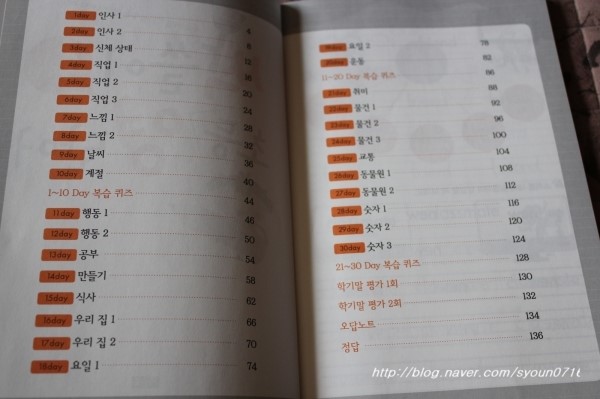 1day 인사 1 4
2day 인사 2 8
3day 신체 상태 12
4day 직업 1 16
5day 직업 2 20
6day 직업 3 24
7day 느낌 1 28
8day 느낌 2 32
9day 날씨 36
10day 계절 40
1~10 Day 복습 퀴즈 44
11day 행동 1 46
12day 행동 2 50
13day 공부 54
14day 만들기 58
15day 식사 62
16day 우리 집 1 66
17day 우리 집 2 70
18day 요일 1 74
19day 요일 2 78
20day 운동 82
11~20 Day 복습 퀴즈 86
21day 취미 88
22day 물건 1 92
23day 물건 2 96
24day 물건 3 100
25day 교통 104
26day 동물원 1 108
27day 동물원 2 112
28day 숫자 1 116
29day 숫자 2 120
30day 숫자 3 124
21~30 Day 복습 퀴즈 128
학기말 평가 1회 130
학기말 평가 2회 132
오답노트 134
정답 136
http://blog.naver.com/syoun0716